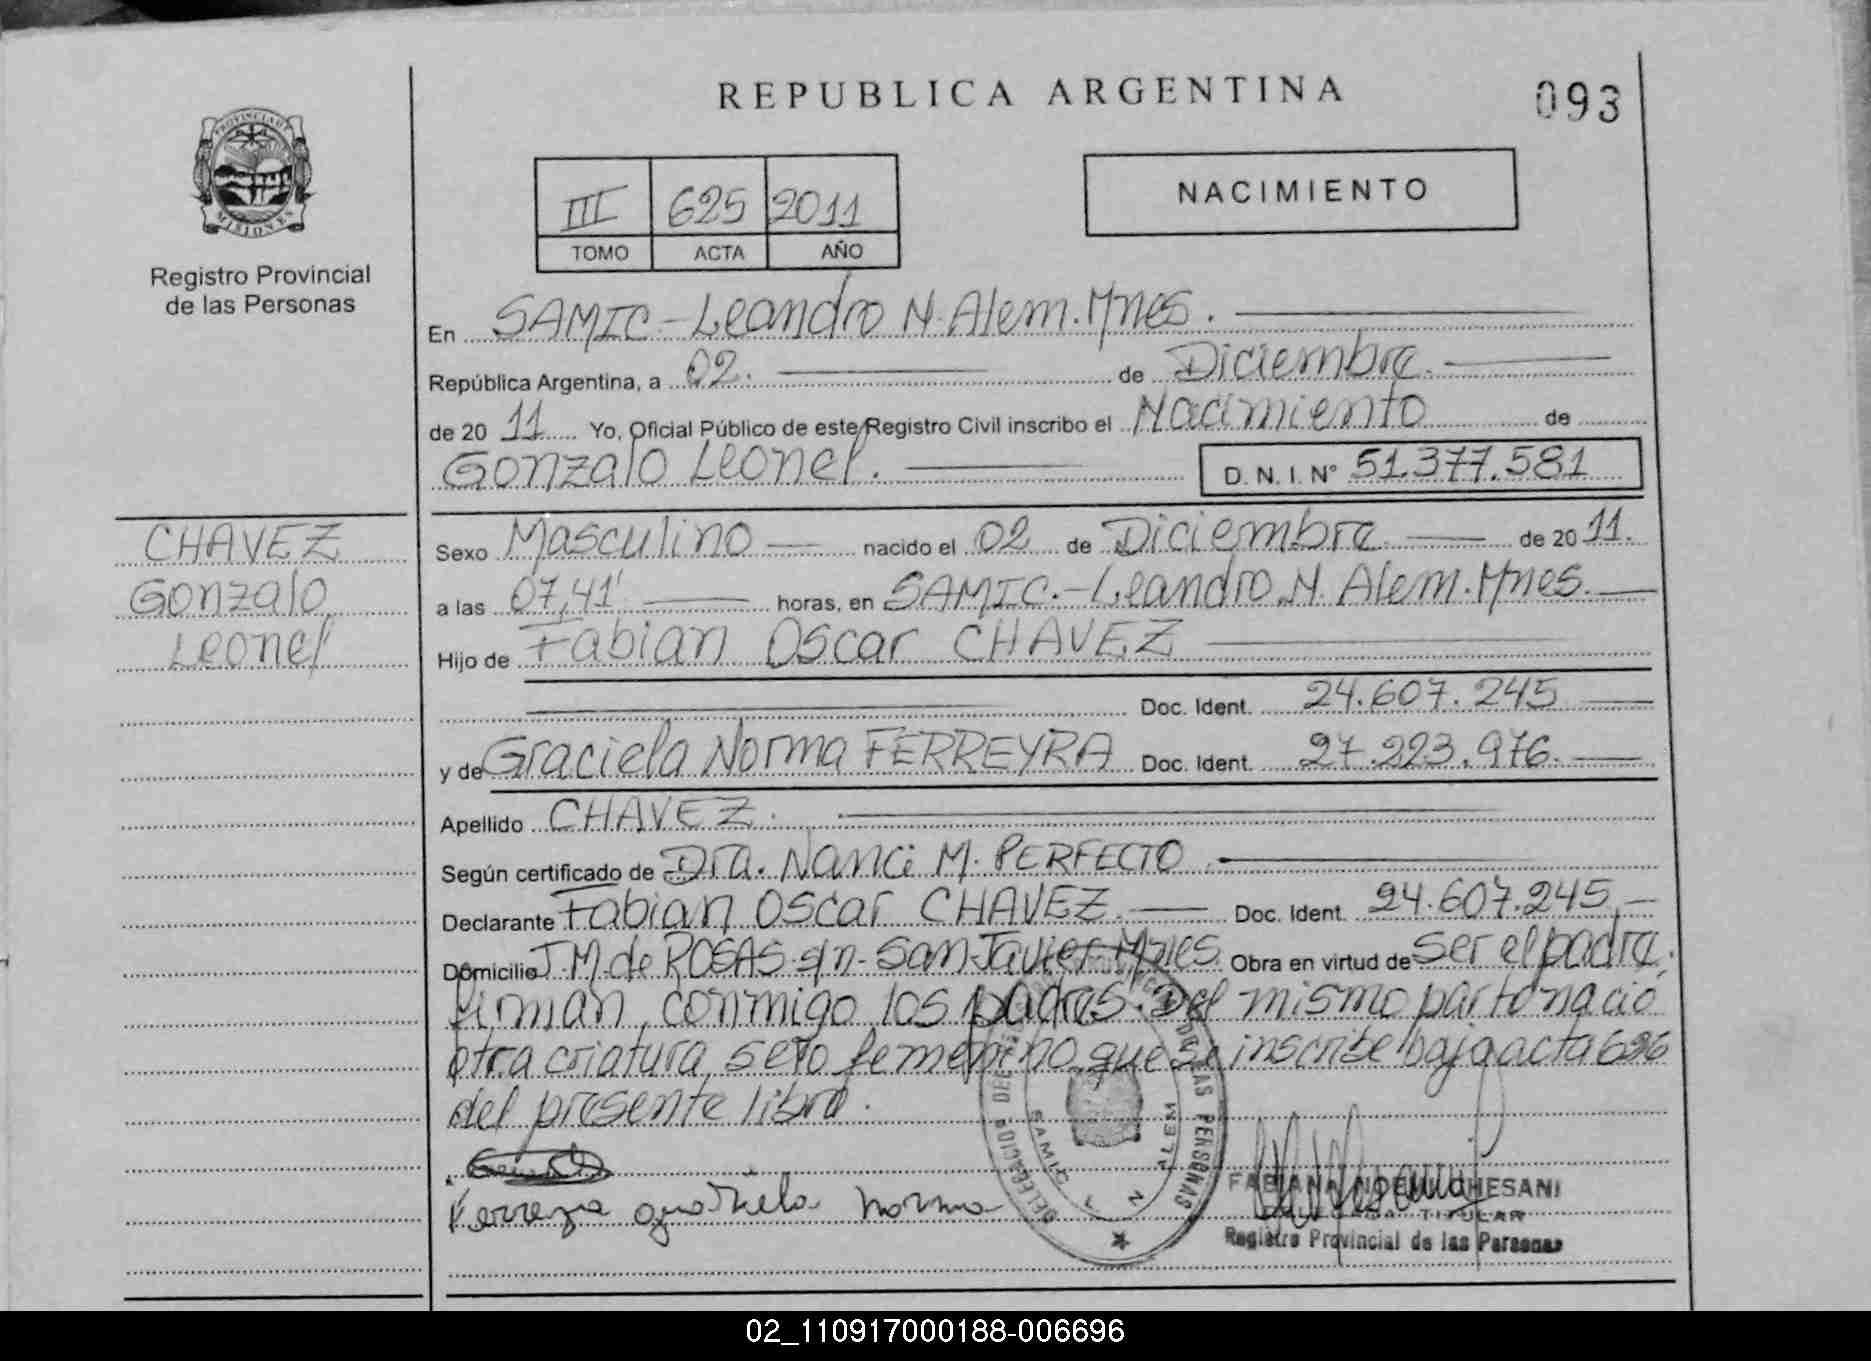 REPUBLICA ARGENTINA
093
PROVINCIA DE
MISIONES
Registro Provincial
de las Personas
III 625 2011
TOMO ACTA AÑO
NACIMIENTO
En SAMIC-Leandro N. Alem. Mnes.
República Argentina, a 02. de Diciembre.
de 20 11 Yo, Oficial Público de este Registro Civil inscribo el Nacimiento de
Gonzalo Leonel. D.N.I. N° 51.377.581
CHAVEZ
Gonzalo
Leonel
Sexo Masculino nacido el 02 de Diciembre de 20 11.
a las 07,41' horas, en SAMIC.-Leandro N. Alem. Mnes.
Hijo de Fabian Oscar CHAVEZ
Doc. Ident. 24.607.245
y de Graciela Norma FERREYRA Doc. Ident. 27.223.976.
Apellido CHAVEZ.
Según certificado de Dra. Nanci M. PERFECTO
Declarante Fabian Oscar CHAVEZ. Doc. Ident. 24.607.245
Domicilio J.M. de ROSAS s/n - San Javier Mnes. Obra en virtud de ser el padre,
firman conmigo los padres. Del mismo parto nació
otra criatura sexo femenino que se inscribe bajo acta 626
del presente libro.
Ferreyra Norma
DELEGACION
LAS PERSONAS
SAMIC L N ALEM
FABIANA NOEMI CHESANI
DELEGADA TITULAR
Registro Provincial de las Personas
02_110917000188-006696